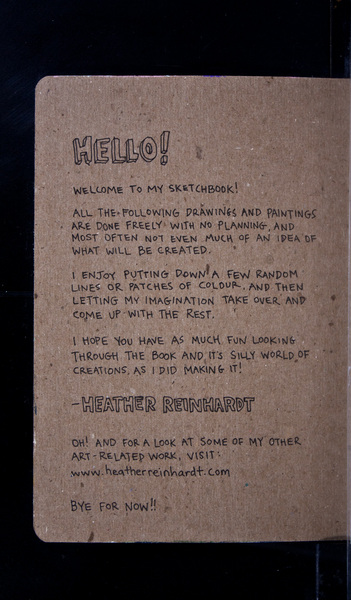 HELLO!
WELCOME TO MY SKETCHBOOK!
ALL THE FOLLOWING DRAWINGS AND PAINTINGS
ARE DONE FREELY WITH NO PLANNING, AND
MOST OFTEN NOT EVEN MUCH OF AN IDEA OF
WHAT WILL BE CREATED.
I ENJOY PUTTING DOWN A FEW RANDOM
LINES OR PATCHES OF COLOUR, AND THEN
LETTING MY IMAGINATION TAKE OVER AND
COME UP WITH THE REST.
I HOPE YOU HAVE AS MUCH FUN LOOKING
THROUGH THE BOOK AND IT'S SILLY WORLD OF
CREATIONS, AS I DID MAKING IT!
-HEATHER REINHARDT
OH! AND FOR A LOOK AT SOME OF MY OTHER
ART-RELATED WORK, VISIT:
www.heatherreinhardt.com
BYE FOR NOW!!